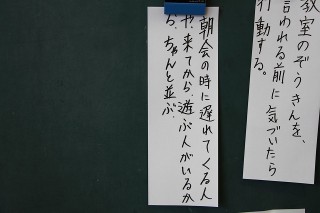 教室のぞうきんを、
言われる前に気づいたら
行動する。
朝会の時に遅れてくる人
や、来てから、遊ぶ人がいるか
ら、ちゃんと並ぶ。